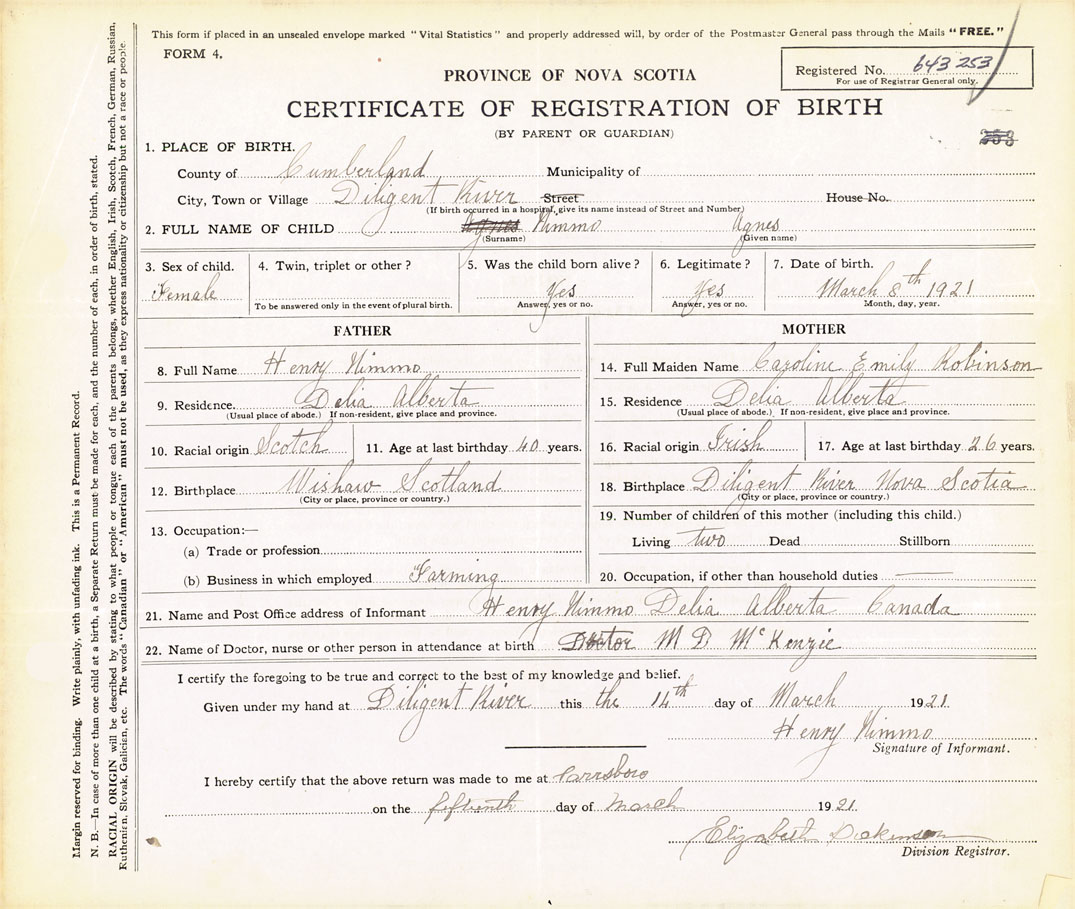 This form if placed in an unsealed envelope marked "Vital Statistics" and properly addressed will, by order of the Postmaster General pass through the Mails "FREE."
FORM 4.
Registered No. 643 253
For use of Registrar General only.
PROVINCE OF NOVA SCOTIA
CERTIFICATE OF REGISTRATION OF BIRTH
(BY PARENT OR GUARDIAN)
253
1. PLACE OF BIRTH.
County of Cumberland Municipality of
City, Town or Village Diligent River Street House No.
(If birth occurred in a hospital, give its name instead of Street and Number)
2. FULL NAME OF CHILD Agnes Nimmo Agnes
(Surname) (Given name)
3. Sex of child. Female
4. Twin, triplet or other?
To be answered only in the event of plural birth.
5. Was the child born alive? Yes
Answer, yes or no.
6. Legitimate? Yes
Answer, yes or no.
7. Date of birth. March 8th 1921
Month, day, year.
FATHER
8. Full Name Henry Nimmo
9. Residence. Delia Alberta
(Usual place of abode.) If non-resident, give place and province.
10. Racial origin Scotch 11. Age at last birthday 40 years.
12. Birthplace Wishaw Scotland
(City or place, province or country.)
13. Occupation:—
(a) Trade or profession
(b) Business in which employed Farming
MOTHER
14. Full Maiden Name Caroline Emily Robinson
15. Residence Delia Alberta
(Usual place of abode.) If non-resident, give place and province.
16. Racial origin Irish 17. Age at last birthday 26 years.
18. Birthplace Diligent River Nova Scotia
(City or place, province or country.)
19. Number of children of this mother (including this child.)
Living two Dead Stillborn
20. Occupation, if other than household duties —
21. Name and Post Office address of Informant Henry Nimmo Delia Alberta Canada
22. Name of Doctor, nurse or other person in attendance at birth Doctor M D McKenzie
I certify the foregoing to be true and correct to the best of my knowledge and belief.
Given under my hand at Diligent River this the 14th day of March 1921.
Henry Nimmo
Signature of Informant.
I hereby certify that the above return was made to me at Parrsboro
on the fifteenth day of March 1921.
Elizabeth Dickinson
Division Registrar.
Margin reserved for binding. Write plainly, with unfading ink. This is a Permanent Record.
N. B.—In case of more than one child at a birth, a Separate Return must be made for each, and the number of each, in order of birth, stated.
RACIAL ORIGIN will be described by stating to what people or tongue each of the parents belongs, whether English, Irish, Scotch, French, German, Russian,
Ruthenien, Slovak, Galician, etc. The words "Canadian" or "American" must not be used, as they express nationality or citizenship but not a race or people.